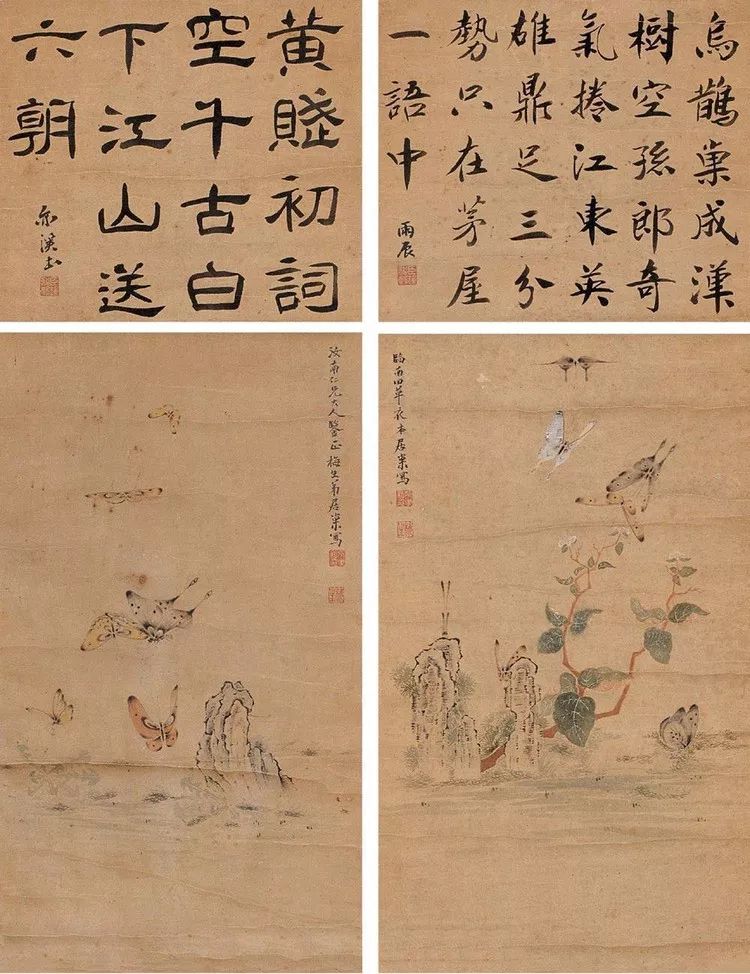 烏鵲巢成漢
樹空孫郎奇
氣捲江東英
雄鼎足三分
勢只在茅屋
一語中
雨辰
黃賤初詞
空千古白
下江山送
六朝
臨南田草衣本居巢寫
汝南仁兄大人鑒正梅生弟居巢寫